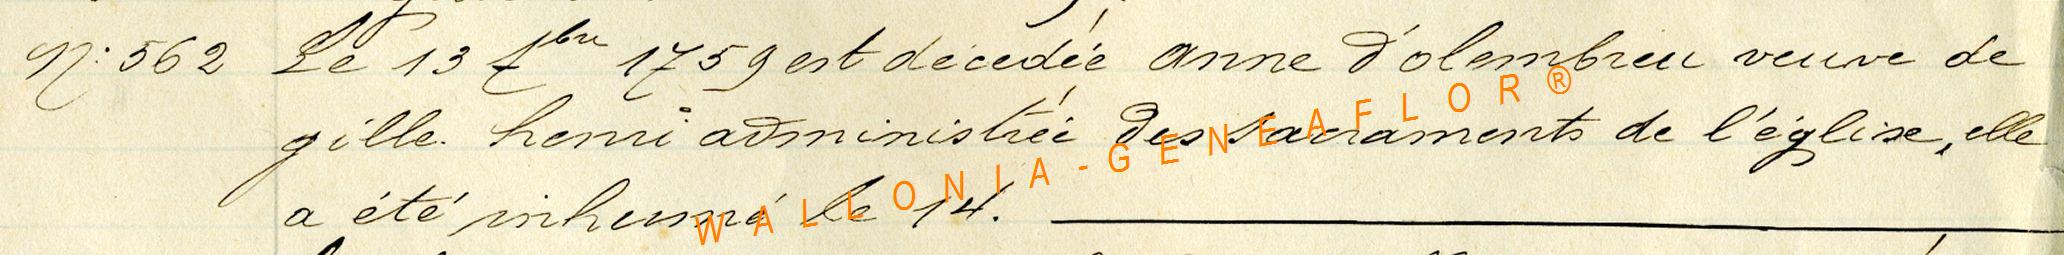 N: 562 Le 13 fbre 1759 est décédée anne d'olembreu veuve de
gille henri administrée des sacraments de l'église, elle
a été inhumé le 14.
WALLONIA-GENEAFLOR®